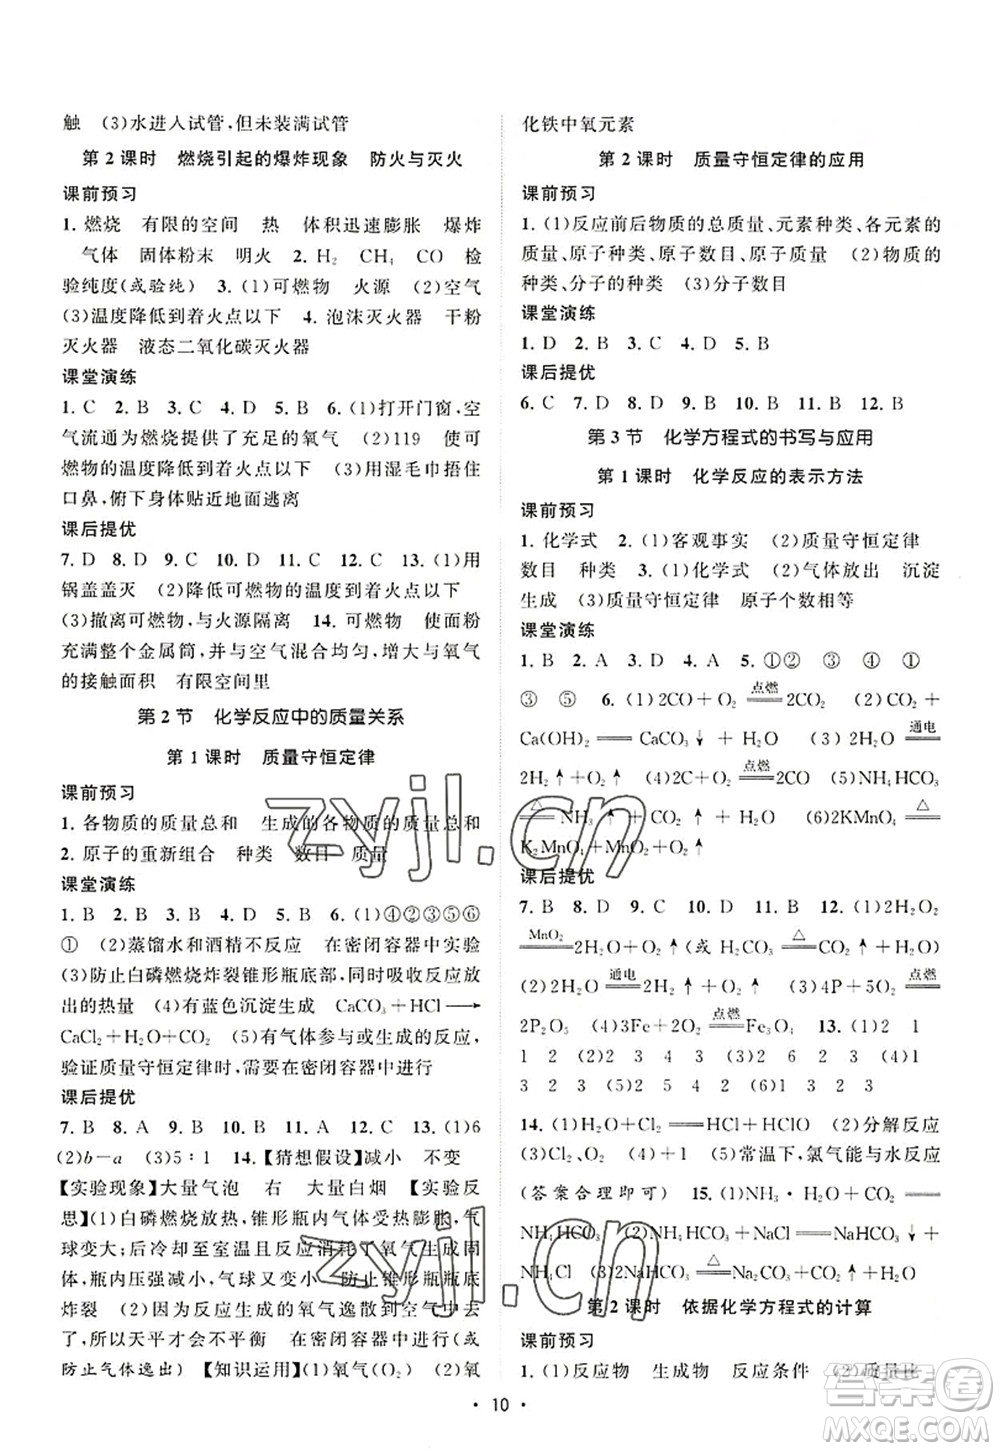 触　(3)水进入试管,但未装满试管
第 2 课时　燃烧引起的爆炸现象　防火与灭火
课前预习
1. 燃烧　有限的空间　热　体积迅速膨胀　爆炸
气体　固体粉末　明火　2. H₂　CH₄　CO　检
验纯度(或验纯)　3. (1)可燃物　火源　(2)空气
(3)温度降低到着火点以下　4. 泡沫灭火器　干粉
灭火器　液态二氧化碳灭火器
课堂演练
1. C　2. B　3. C　4. D　5. B　6. (1)打开门窗,空
气流通为燃烧提供了充足的氧气　(2)119　使可
燃物的温度降低到着火点以下　(3)用湿毛巾捂住
口鼻,俯下身体贴近地面逃离
课后提优
7. D　8. D　9. C　10. D　11. D　12. C　13. (1)用
锅盖盖灭　(2)降低可燃物的温度到着火点以下
(3)撤离可燃物,与火源隔离　14. 可燃物　使面粉
充满整个金属筒,并与空气混合均匀,增大与氧气
的接触面积　有限空间里
第 2 节　化学反应中的质量关系
第 1 课时　质量守恒定律
课前预习
1. 各物质的质量总和　生成的各物质的质量总和
2. 原子的重新组合　种类　数目　质量
课堂演练
1. B　2. B　3. A　4. D　5. B　6. (1)④②③⑤⑥
①　(2)蒸馏水和酒精不反应　在密闭容器中实验
(3)防止白磷燃烧炸裂锥形瓶底部,同时吸收反应放
出的热量　(4)有蓝色沉淀生成　CaCO₃+HCl⟶
CaCl₂+H₂O+CO₂　(5)有气体参与或生成的反应,
验证质量守恒定律时,应在密闭容器中进行
课后提优
7. B　8. A　9. A　10. D　11. B　12. D　13. (1)6
(2)b-a　(3)5∶1　14.【猜想假设】减小　不变
【实验现象】大量气泡　右　大量白烟　【实验反
思】(1)白磷燃烧放热,锥形瓶内气体受热膨胀,气
球变大;冷却至室温且反应消耗了氧气使得锥形瓶
内压强减小,气球又变小　防止锥形瓶瓶底
炸裂　(2)因为反应生成的氧气逸散到空气中了,
所以天平才会不平衡　在密闭容器中进行反应(或
防止气体逸出)　【知识运用】(1)氧气(O₂)　(2)氧
化铁中氧元素
第 2 课时　质量守恒定律的应用
课前预习
1. (1)反应前后物质的总质量、元素种类、各元素的
质量、原子种类、原子数目、原子质量　(2)物质的
种类、分子的种类　(3)分子数目
课堂演练
1. D　2. B　3. C　4. D　5. B
课后提优
6. C　7. D　8. D　9. B　10. B　11. B　12. B
第 3 节　化学方程式的书写与应用
第 1 课时　化学反应的表示方法
课前预习
1. 化学式　2. (1)客观事实　(2)质量守恒定律
数目　种类　3. (1)化学式　(2)气体放出　沉淀
生成　(3)质量守恒定律　原子个数相等
课堂演练
1. B　2. A　3. D　4. A　5. ①②　③④　④　①
③　⑤　6. (1)2CO+O₂ 点燃══ 2CO₂　(2)CO₂+
Ca(OH)₂══CaCO₃↓+H₂O　(3)2H₂O 通电══
2H₂↑+O₂↑　(4)2CO+O₂ 点燃══ 2CO₂　(5)NH₄HCO₃
△══NH₃↑+CO₂↑+H₂O　(6)2KMnO₄ △══
K₂MnO₄+MnO₂+O₂↑
课后提优
7. B　8. D　9. C　10. D　11. B　12. (1)2H₂O₂
MnO₂══2H₂O+O₂↑(或 H₂CO₃ △══ H₂O+CO₂↑)
(2)2H₂O 通电══ 2H₂↑+O₂↑　(3)4P+5O₂ 点燃══
2P₂O₅　(4)3Fe+2O₂ 点燃══ Fe₃O₄　13. (1)2　1
1　2　(2)2　1　2　1　2　(3)2　2　3　(4)1
3　2　3　(5)2　13　8　10　(6)1　3　2　3
14. (1)H₂O+Cl₂══HCl+HClO　(2)分解反应
(3)反应　(4)常温　(5)常温下,氯气能与水反应
(答案合理即可)　15. (1)NH₃·H₂O+CO₂══
NH₄HCO₃　(2)NH₄HCO₃+NaCl══NaHCO₃↓+
NH₄Cl　(3)2NaHCO₃ △══ Na₂CO₃+CO₂↑+H₂O
第 2 课时　依据化学方程式的计算
课前预习
1. (1)反应物　生成物　反应条件　(2)质量比
· 10 ·
zyjl.cn
zyjl.cn
答案圈
MXQE.COM